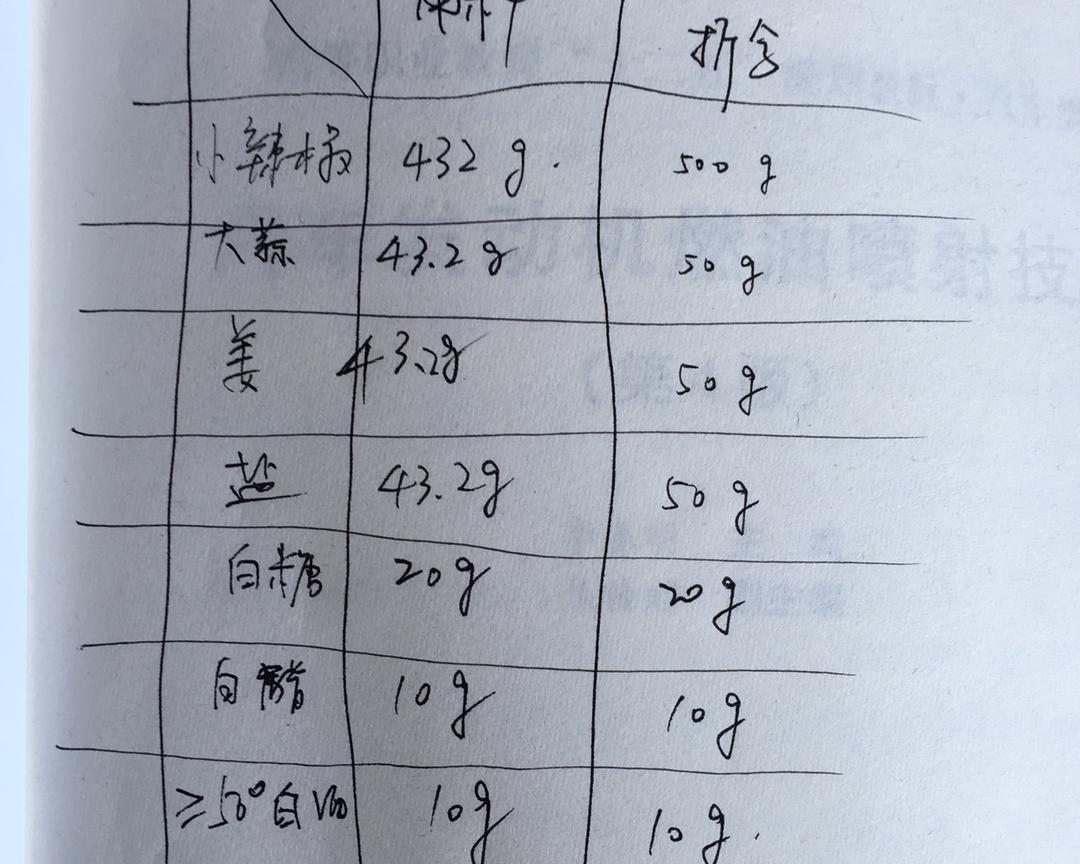 折合
小辣椒 432 g. 500 g
大蒜 43.2 g 50 g
姜 43.2g 50 g
盐 43.2g 50 g
白糖 20g 20 g
白醋 10g 10g
≥50°白酒 10g 10g.